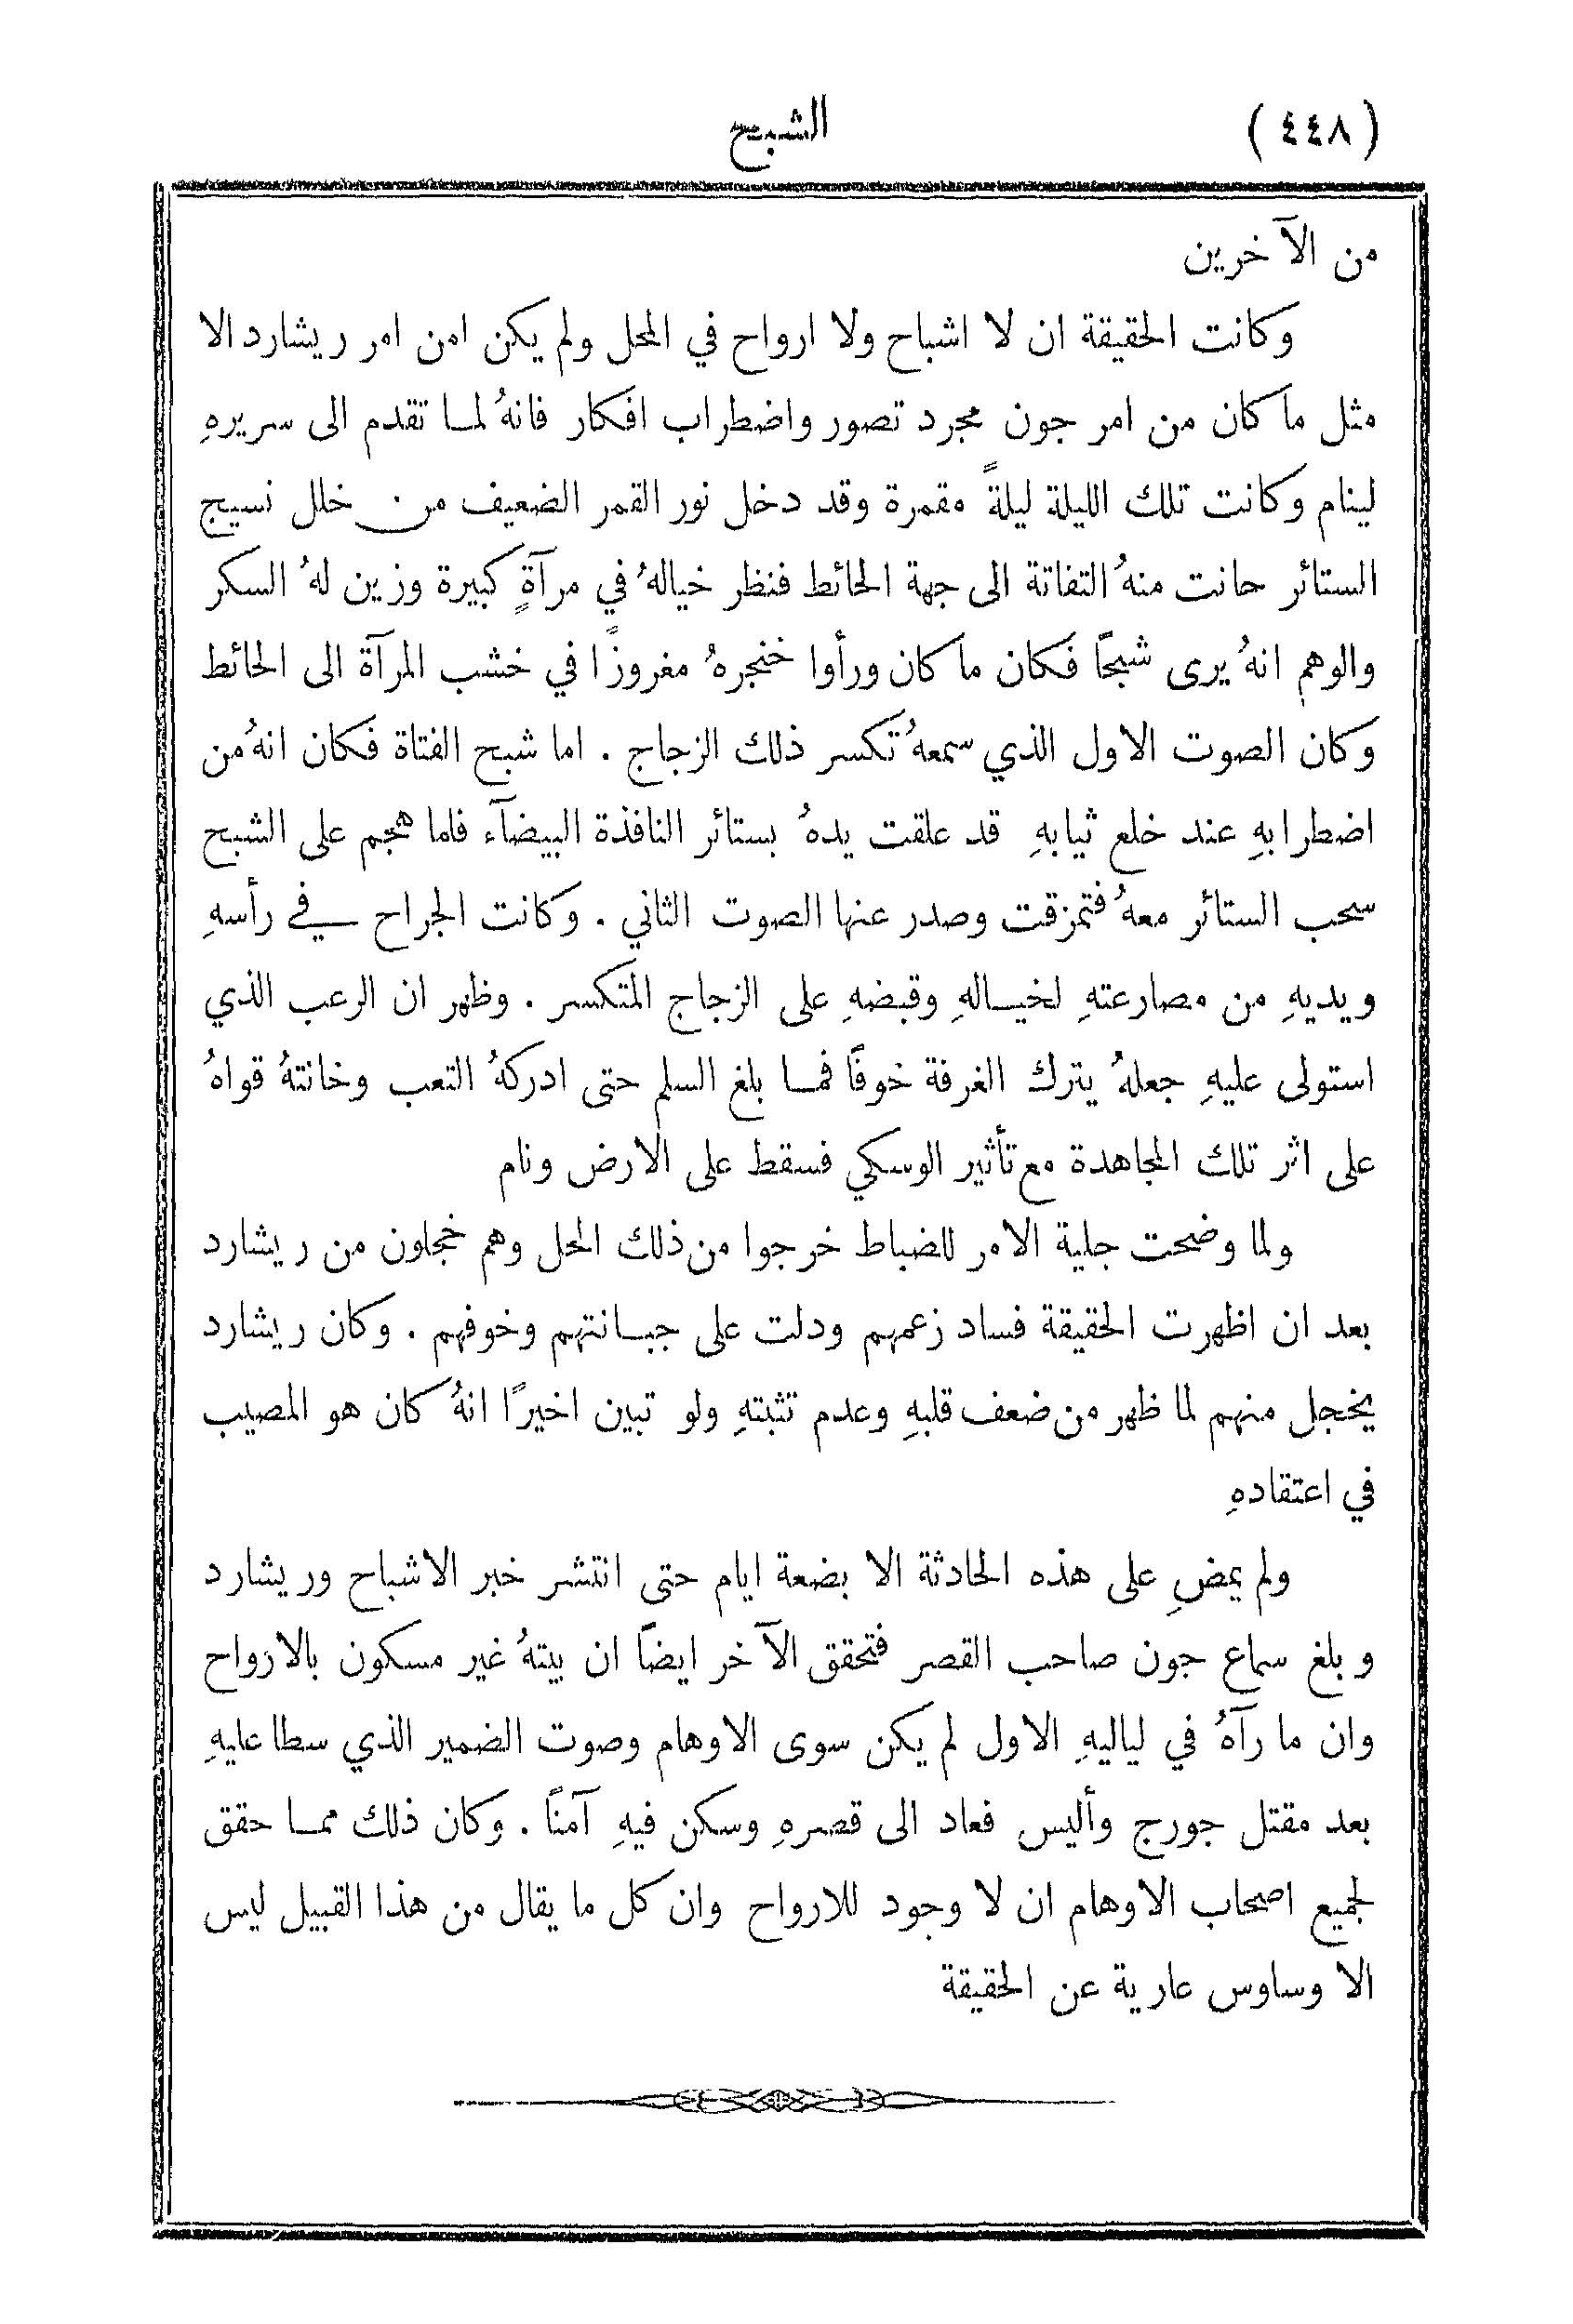 (٤٤٨) الشبح
من الآخرين
وكانت الحقيقة ان لا اشباح ولا ارواح في المحل ولم يكن امن امر ريشارد الا
مثل ما كان من امر جون مجرد تصور واضطراب افكار فانهُ لما تقدم الى سريرهِ
لينام وكانت تلك الليلة ليلةً مقمرة وقد دخل نور القمر الضعيف من خلل نسيج
الستائر حانت منهُ التفاتة الى جهة الحائط فنظر خيالهُ في مرآةٍ كبيرة وزين لهُ السكر
والوهم انهُ يرى شبحًا فكان ما كان ورأوا خنجرهُ مغروزًا في خشب المرآة الى الحائط
وكان الصوت الاول الذي سمعهُ تكسر ذلك الزجاج . اما شبح الفتاة فكان انهُ من
اضطرابهِ عند خلع ثيابهِ قد علقت يدهُ بستائر النافذة البيضآء فلما هجم على الشبح
سحب الستائر معهُ فتمزقت وصدر عنها الصوت الثاني . وكانت الجراح في رأسهِ
ويديهِ من مصارعتهِ لخيالهِ وقبضهِ على الزجاج المتكسر . وظهر ان الرعب الذي
استولى عليهِ جعلهُ يترك الغرفة خوفًا فما بلغ السلم حتى ادركهُ التعب وخانتهُ قواهُ
على اثر تلك المجاهدة مع تأثير الوسكي فسقط على الارض ونام
ولما وضحت جلية الامر للضباط خرجوا من ذلك المحل وهم خجلون من ريشارد
بعد ان اظهرت الحقيقة فساد زعمهم ودلت على جبانتهم وخوفهم . وكان ريشارد
يخجل منهم لما ظهر من ضعف قلبهِ وعدم تثبتهِ ولو تبين اخيرًا انهُ كان هو المصيب
في اعتقادهِ
ولم يمضِ على هذه الحادثة الا بضعة ايام حتى انتشر خبر الاشباح وريشارد
وبلغ سماع جون صاحب القصر فتحقق الآخر ايضًا ان بيتهُ غير مسكون بالارواح
وان ما رآهُ في لياليهِ الاول لم يكن سوى الاوهام وصوت الضمير الذي سطا عليهِ
بعد مقتل جورج وأليس فعاد الى قصرهِ وسكن فيهِ آمنًا . وكان ذلك مما حقق
لجميع اصحاب الاوهام ان لا وجود للارواح وان كل ما يقال من هذا القبيل ليس
الا وساوس عارية عن الحقيقة